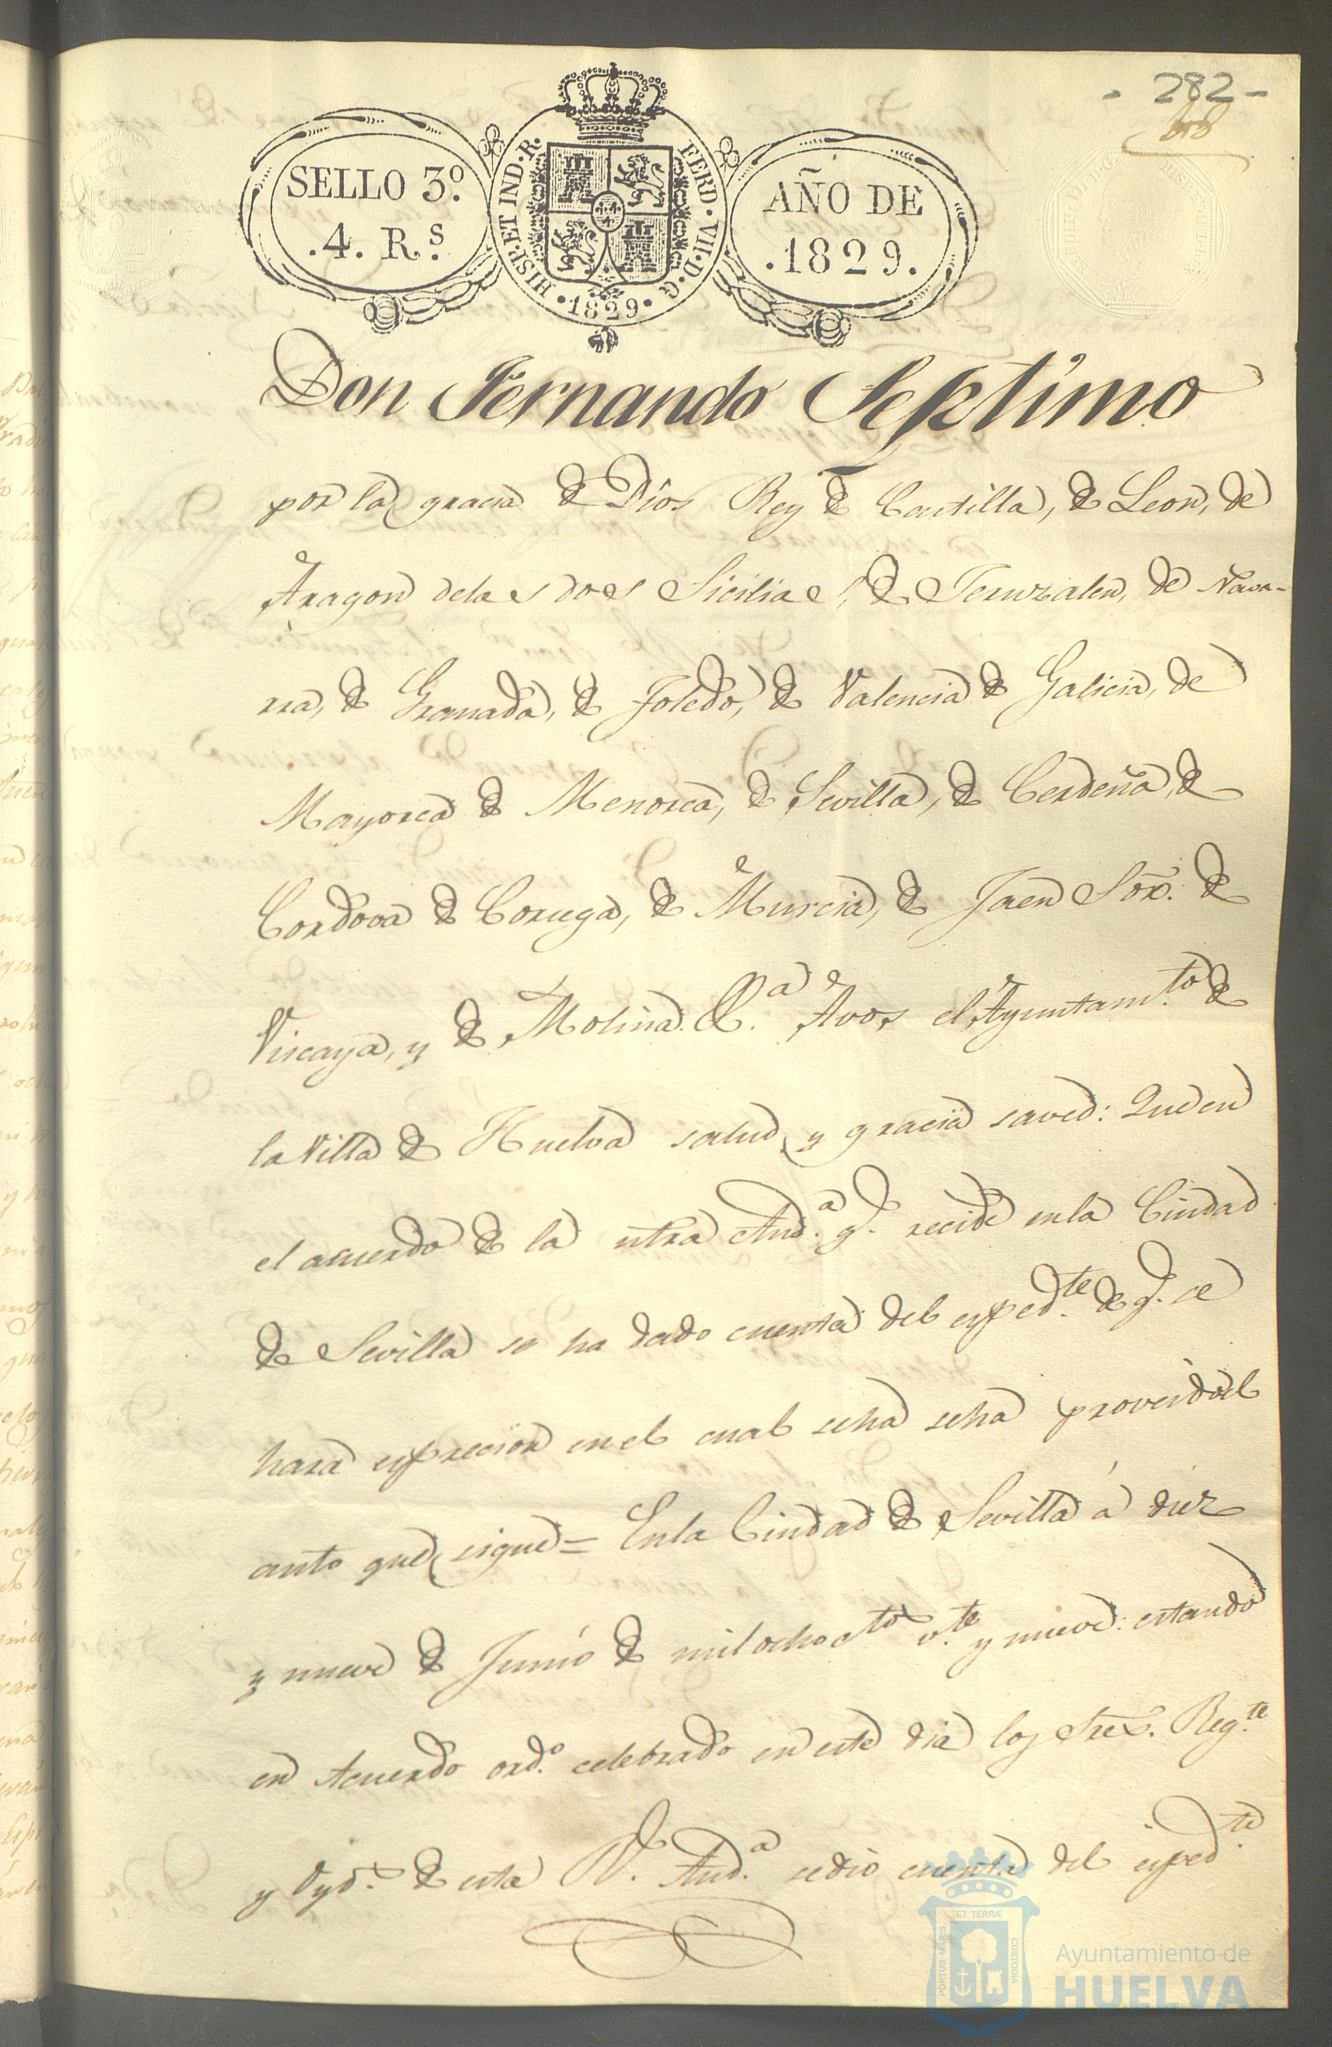 - 282 -
SELLO 3º.
.4. Rs.
HISP. ET IND. R. FERD. VII. D. G.
.1829.
AÑO DE
.1829.
Don Fernando Septimo
por la gracia de Dios Rey de Castilla, de Leon, de
Aragon delas dos Sicilias, de Jeruzalen, de Nava-
rra, de Granada, de Toledo, de Valencia de Galicia, de
Mayorca de Menorca, de Sevilla, de Cerdeña, de
Cordova de Corcega, de Murcia, de Jaen Sor. de
Viscaya, y de Molina &.a Avos el Ayuntam.to de
la Villa de Huelva salud y gracia saved: Que en
el acuerdo de la ntra Aud.a q.e recide enla Ciudad
de Sevilla se ha dado cuenta del exped.te de q.e se
hara exprecion enel cual seha seha proveido el
auto que sigue = Enla Ciudad de Sevilla á diez
y nueve de Junio de mil ochoctos v.te y nueve: estando
en Acuerdo ord.o celebrado en este dia los Sres. Reg.te
y Oyd.s de esta R.l Aud.a sedio cuenta del exped.te
PORTUS MARIS ET TERRÆ CUSTODIA
Ayuntamiento de
HUELVA